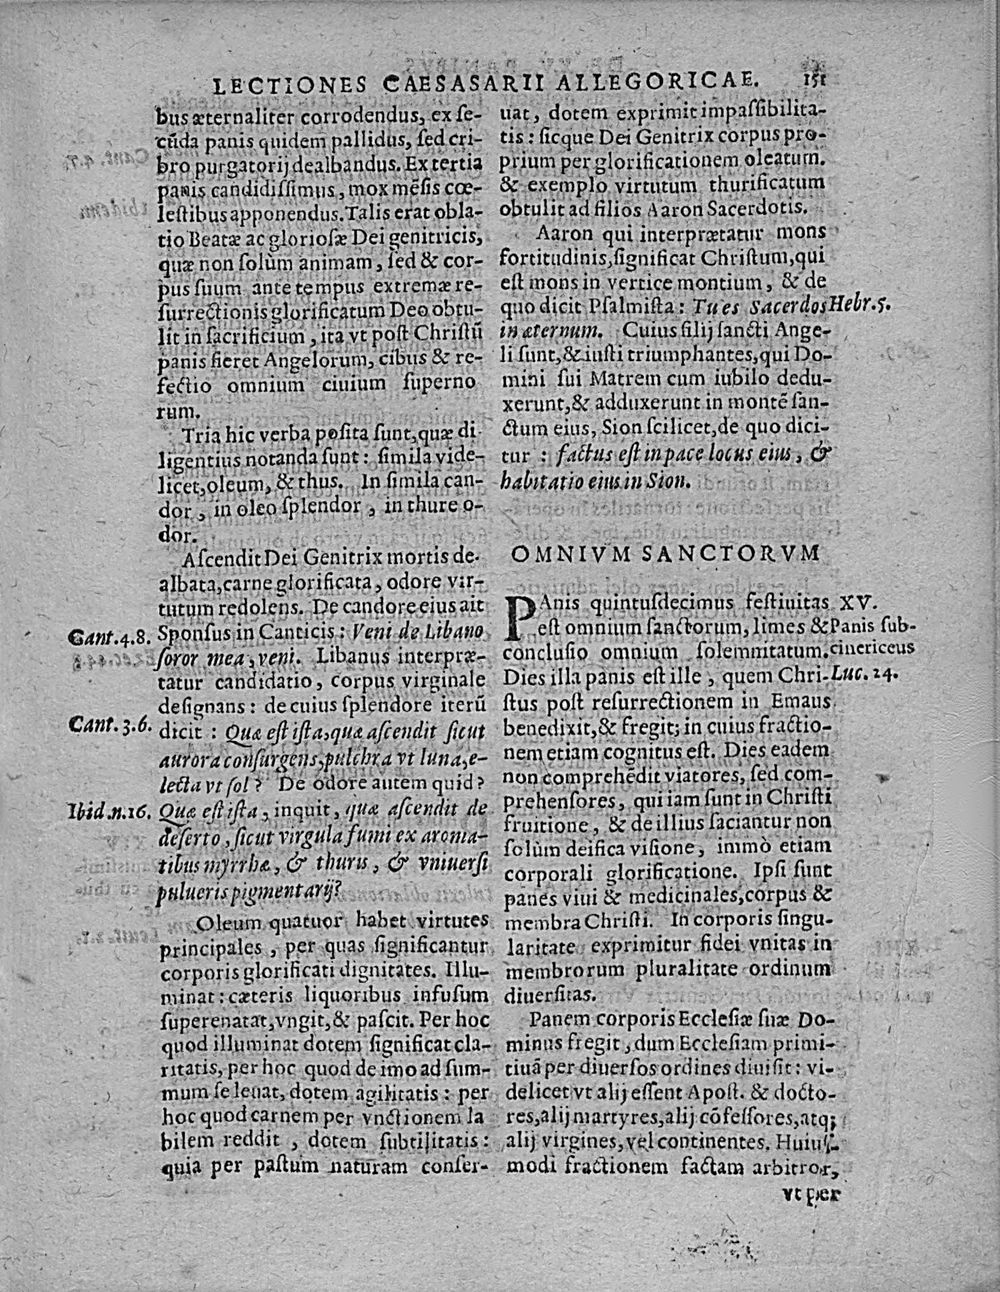 LECTIONES CAESASARII ALLEGORICAE. 151
bus æternaliter corrodendus, ex se-
cũda panis quidem pallidus, sed cri-
bro purgatorij dealbandus. Ex tertia
panis candidissimus, mox mẽsis cœ-
lestibus apponendus. Talis erat obla-
tio Beatæ ac gloriosæ Dei genitricis,
quæ non solùm animam, sed & cor-
pus suum ante tempus extremæ re-
surrectionis glorificatum Deo obtu-
lit in sacrificium, ita vt post Christũ
panis fieret Angelorum, cibus & re-
fectio omnium ciuium superno
rum.
Tria hic verba posita sunt, quæ di-
ligentius notanda sunt: simila vide-
licet, oleum, & thus. In simila can-
dor, in oleo splendor, in thure o-
dor.
Ascendit Dei Genitrix mortis de-
albata, carne glorificata, odore vir-
tutum redolens. De candore eius ait
Cant. 4. 8. Sponsus in Canticis: Veni de Libano
soror mea, veni. Libanus interpræ-
tatur candidatio, corpus virginale
designans: de cuius splendore iterũ
Cant. 3. 6. dicit: Quæ est ista, quæ ascendit sicut
aurora consurgens, pulchra vt luna, e-
lecta vt sol? De odore autem quid?
Ibid. n. 16. Quæ est ista, inquit, quæ ascendit de
deserto, sicut virgula fumi ex aroma-
tibus myrrhæ, & thuris, & vniuersi
pulueris pigmentarij?
Oleum quatuor habet virtutes
principales, per quas significantur
corporis glorificati dignitates. Illu-
minat: cæteris liquoribus infusum
superenatat, vngit, & pascit. Per hoc
quod illuminat dotem significat cla-
ritatis, per hoc quod de imo ad sum-
mum se leuat, dotem agilitatis: per
hoc quod carnem per vnctionem la
bilem reddit, dotem subtilitatis:
quia per pastum naturam conser-
uat, dotem exprimit impassibilita-
tis: sicque Dei Genitrix corpus pro-
prium per glorificationem oleatum.
& exemplo virtutum thurificatum
obtulit ad filios Aaron Sacerdotis.
Aaron qui interprætatur mons
fortitudinis, significat Christum, qui
est mons in vertice montium, & de
quo dicit Psalmista: Tu es Sacerdos Hebr. 5.
in æternum. Cuius filij sancti Ange-
li sunt, & iusti triumphantes, qui Do-
mini sui Matrem cum iubilo dedu-
xerunt, & adduxerunt in montẽ san-
ctum eius, Sion scilicet, de quo dici-
tur: factus est in pace locus eius, &
habitatio eius in Sion.
OMNIVM SANCTORVM
PAnis quintusdecimus festiuitas XV.
est omnium sanctorum, limes & Panis sub-
conclusio omnium solemnitatum. cinericeus
Dies illa panis est ille, quem Chri- Luc. 24.
stus post resurrectionem in Emaus
benedixit, & fregit; in cuius fractio-
nem etiam cognitus est. Dies eadem
non comprehẽdit viatores, sed com-
prehensores, qui iam sunt in Christi
fruitione, & de illius saciantur non
solùm deifica visione, immò etiam
corporali glorificatione. Ipsi sunt
panes viui & medicinales, corpus &
membra Christi. In corporis singu-
laritate exprimitur fidei vnitas in
membrorum pluralitate ordinum
diuersitas.
Panem corporis Ecclesiæ suæ Do-
minus fregit, dum Ecclesiam primi-
tiuã per diuersos ordines diuisit: vi-
delicet vt alij essent Apost. & docto-
res, alij martyres, alij cõfessores, atq;
alij virgines, vel continentes. Huius-
modi fractionem factam arbitror,
vt per